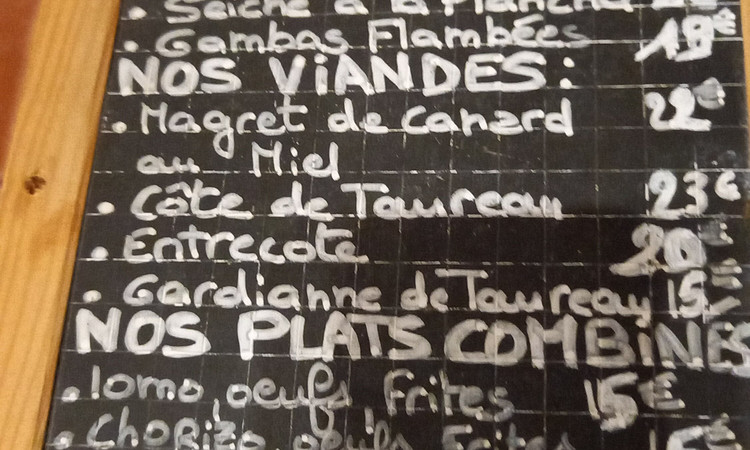 . Seiche à la Plancha
. Gambas Flambées 18€
NOS ViANDES:
. Magret de canard 22€
au Miel
. Côte de Taureau 23€
. Entrecote 20€
. Gardianne de Taureau 15€
NOS PLATS COMBiNES
. lomo, oeufs frites 15€
. Chorizo, oeufs frites 15€